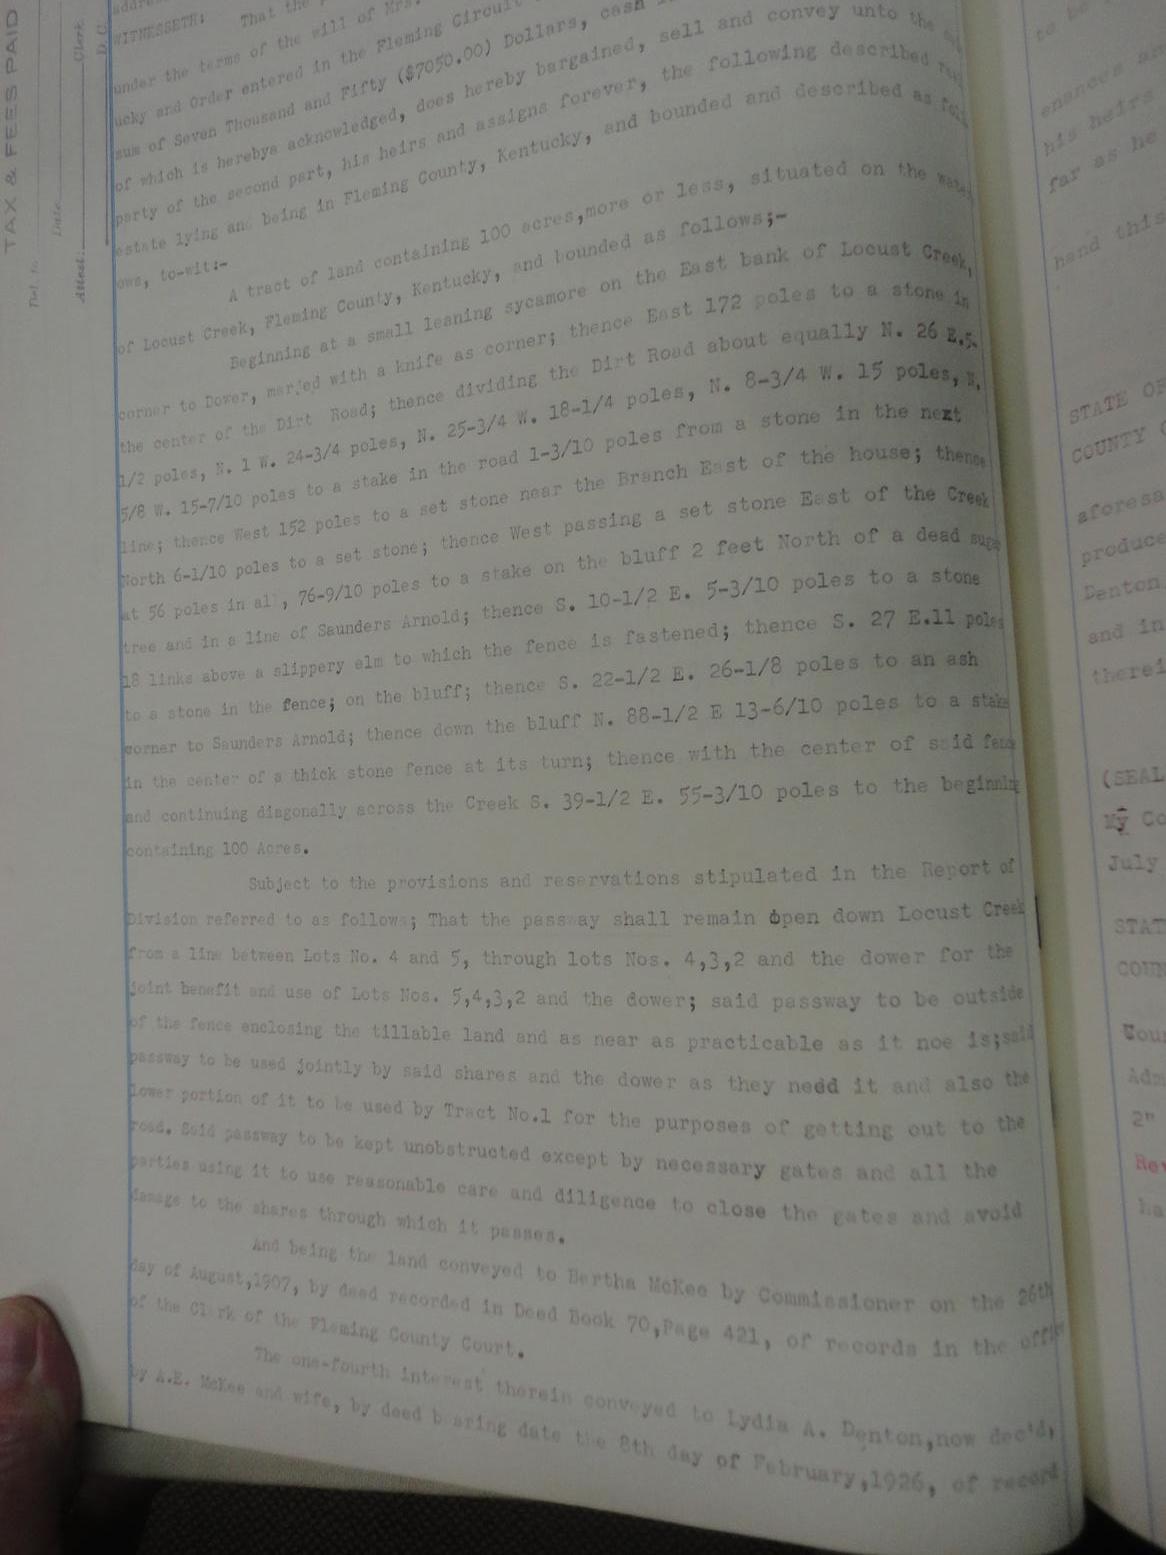 TAX & FEES PAID
Date
Attest:
Clerk
D. C.
WITNESSETH: That the
under the terms of the will of Mrs.
ucky and Order entered in the Fleming Circuit
sum of Seven Thousand and Fifty ($7050.00) Dollars, cash
of which is herebya acknowledged, does hereby bargained, sell and convey unto the
party of the second part, his heirs and assigns forever, the following described real
estate lying and being in Fleming County, Kentucky, and bounded and described as foll-
ows, to-wit:-
A tract of land containing 100 acres,more or less, situated on the waters
of Locust Creek, Fleming County, Kentucky, and bounded as follows;-
Beginning at a small leaning sycamore on the East bank of Locust Creek,
corner to Dower, marjed with a knife as corner; thence East 172 poles to a stone in
the center of the Dirt Road; thence dividing the Dirt Road about equally N. 26 E.5-
1/2 poles, N. 1 W. 24-3/4 poles, N. 25-3/4 W. 18-1/4 poles, N. 8-3/4 W. 15 poles, N.
5/8 W. 15-7/10 poles to a stake in the road 1-3/10 poles from a stone in the next
line; thence West 152 poles to a set stone near the Branch East of the house; thence
North 6-1/10 poles to a set stone; thence West passing a set stone East of the Creek
at 56 poles in all, 76-9/10 poles to a stake on the bluff 2 feet North of a dead sugar
tree and in a line of Saunders Arnold; thence S. 10-1/2 E. 5-3/10 poles to a stone
18 links above a slippery elm to which the fence is fastened; thence S. 27 E.11 poles
to a stone in the fence; on the bluff; thence S. 22-1/2 E. 26-1/8 poles to an ash
corner to Saunders Arnold; thence down the bluff N. 88-1/2 E 13-6/10 poles to a stake
in the center of a thick stone fence at its turn; thence with the center of said fence
and continuing diagonally across the Creek S. 39-1/2 E. 55-3/10 poles to the beginning
containing 100 Acres.
Subject to the provisions and reservations stipulated in the Report of
Division referred to as follows; That the passway shall remain open down Locust Creek
from a line between Lots No. 4 and 5, through lots Nos. 4,3,2 and the dower for the
joint benefit and use of Lots Nos. 5,4,3,2 and the dower; said passway to be outside
of the fence enclosing the tillable land and as near as practicable as it noe is;said
passway to be used jointly by said shares and the dower as they need it and also the
lower portion of it to be used by Tract No.1 for the purposes of getting out to the
road. Said passway to be kept unobstructed except by necessary gates and all the
parties using it to use reasonable care and diligence to close the gates and avoid
damage to the shares through which it passes.
And being the land conveyed to Bertha McKee by Commissioner on the 26th
day of August,1907, by deed recorded in Deed Book 70,Page 421, of records in the office
of the Clerk of the Fleming County Court.
The one-fourth interest therein conveyed to Lydia A. Denton,now dec'd,
by A.E. McKee and wife, by deed bearing date the 8th day of February,1926, of record
to be
enances an
his heirs
far as he
hand this
STATE OF
COUNTY O
aforesa
produce
Denton
and in
therei
(SEAL
My Co
July
STAT
COUN
Cour
Adm
2"
Rev
ha